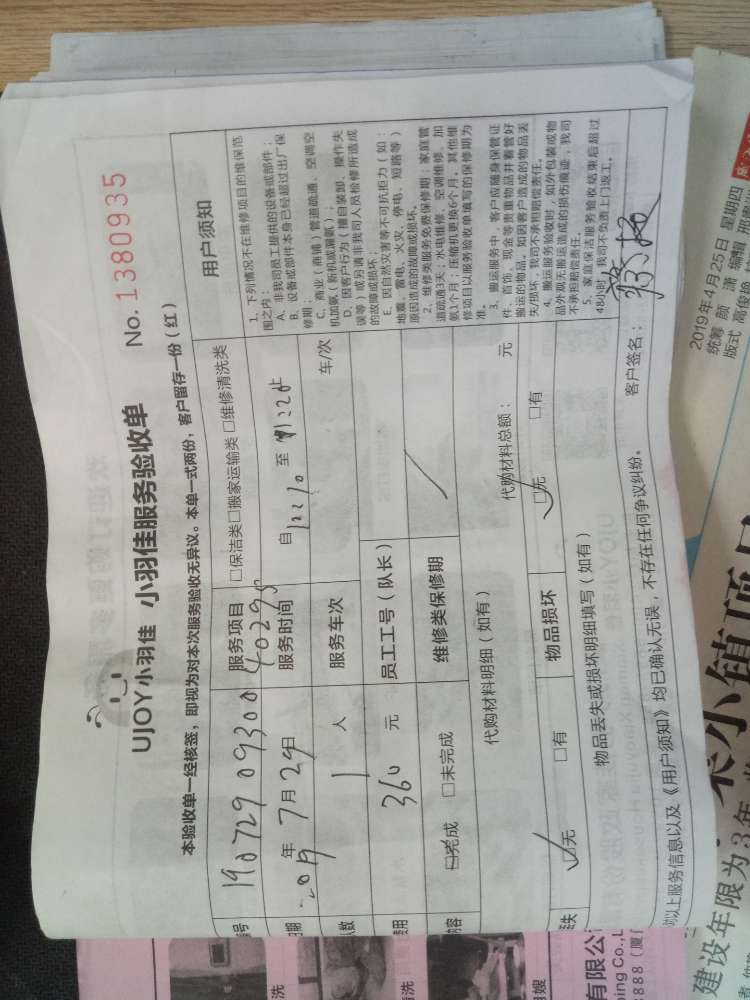 UJOY小羽佳 小羽佳服务验收单
No. 1380935
本验收单一经核签，即视为对本次服务验收无异议。本单一式两份，客户留存一份（红）
号 190729 09300 40295
服务项目 □保洁类□搬家运输类 □维修清洗类
日期 2019年7月29日
服务时间 自 12:10 至
人数 1 人
服务车次 车/次
费用 360 元
员工工号（队长）
内容 □完成 □未完成
维修类保修期
代购材料明细（如有）
代购材料总额： 元
丢失 □无 □有
物品损坏 □无 □有
物品丢失或损坏明细填写（如有）
以上服务信息以及《用户须知》均已确认无误，不存在任何争议纠纷。
客户签名：
用户须知
1. 下列情况不在维修项目的维保范
围之内：
A. 非我司员工提供的设备或部件；
B. 设备或部件本身已经超过出厂保
修期；
C. 商业（商铺）管道疏通、空调空
机加氨（新机或漏氨）；
D. 因客户行为（擅自装卸、操作失
误等）或另请非我司人员检修所造成
的故障或损坏；
E. 因自然灾害等不可抗拒力（如：
地震、雷电、火灾、停电、短路等）
原因造成的故障或损坏。
2. 维修类服务免费保修期：家庭管
道疏通3天；水电维修、空调维修、加
氨1个月；压缩机更换6个月。其他维
修项目以服务验收单填写的保修期为
准。
3. 搬运服务中，客户应随身保管证
件、首饰、现金等贵重物品并看管好
搬运的物品。如因客户造成的物品丢
失/损坏，我司不承担赔偿责任。
4. 搬运服务验收时，如外包装或物
品外观无搬运造成的损伤痕迹，我司
不承担赔偿责任。
5. 家庭保洁服务验收结束后超过
48小时，我司不负责上门返工。
2019年4月25日 星期四
统筹 颜 潇 编辑 邢
版式 高俊艳
小镇项目
建设年限为3年
有限公
ing Co.,L
8888（厦门
清洗
洗
月嫂